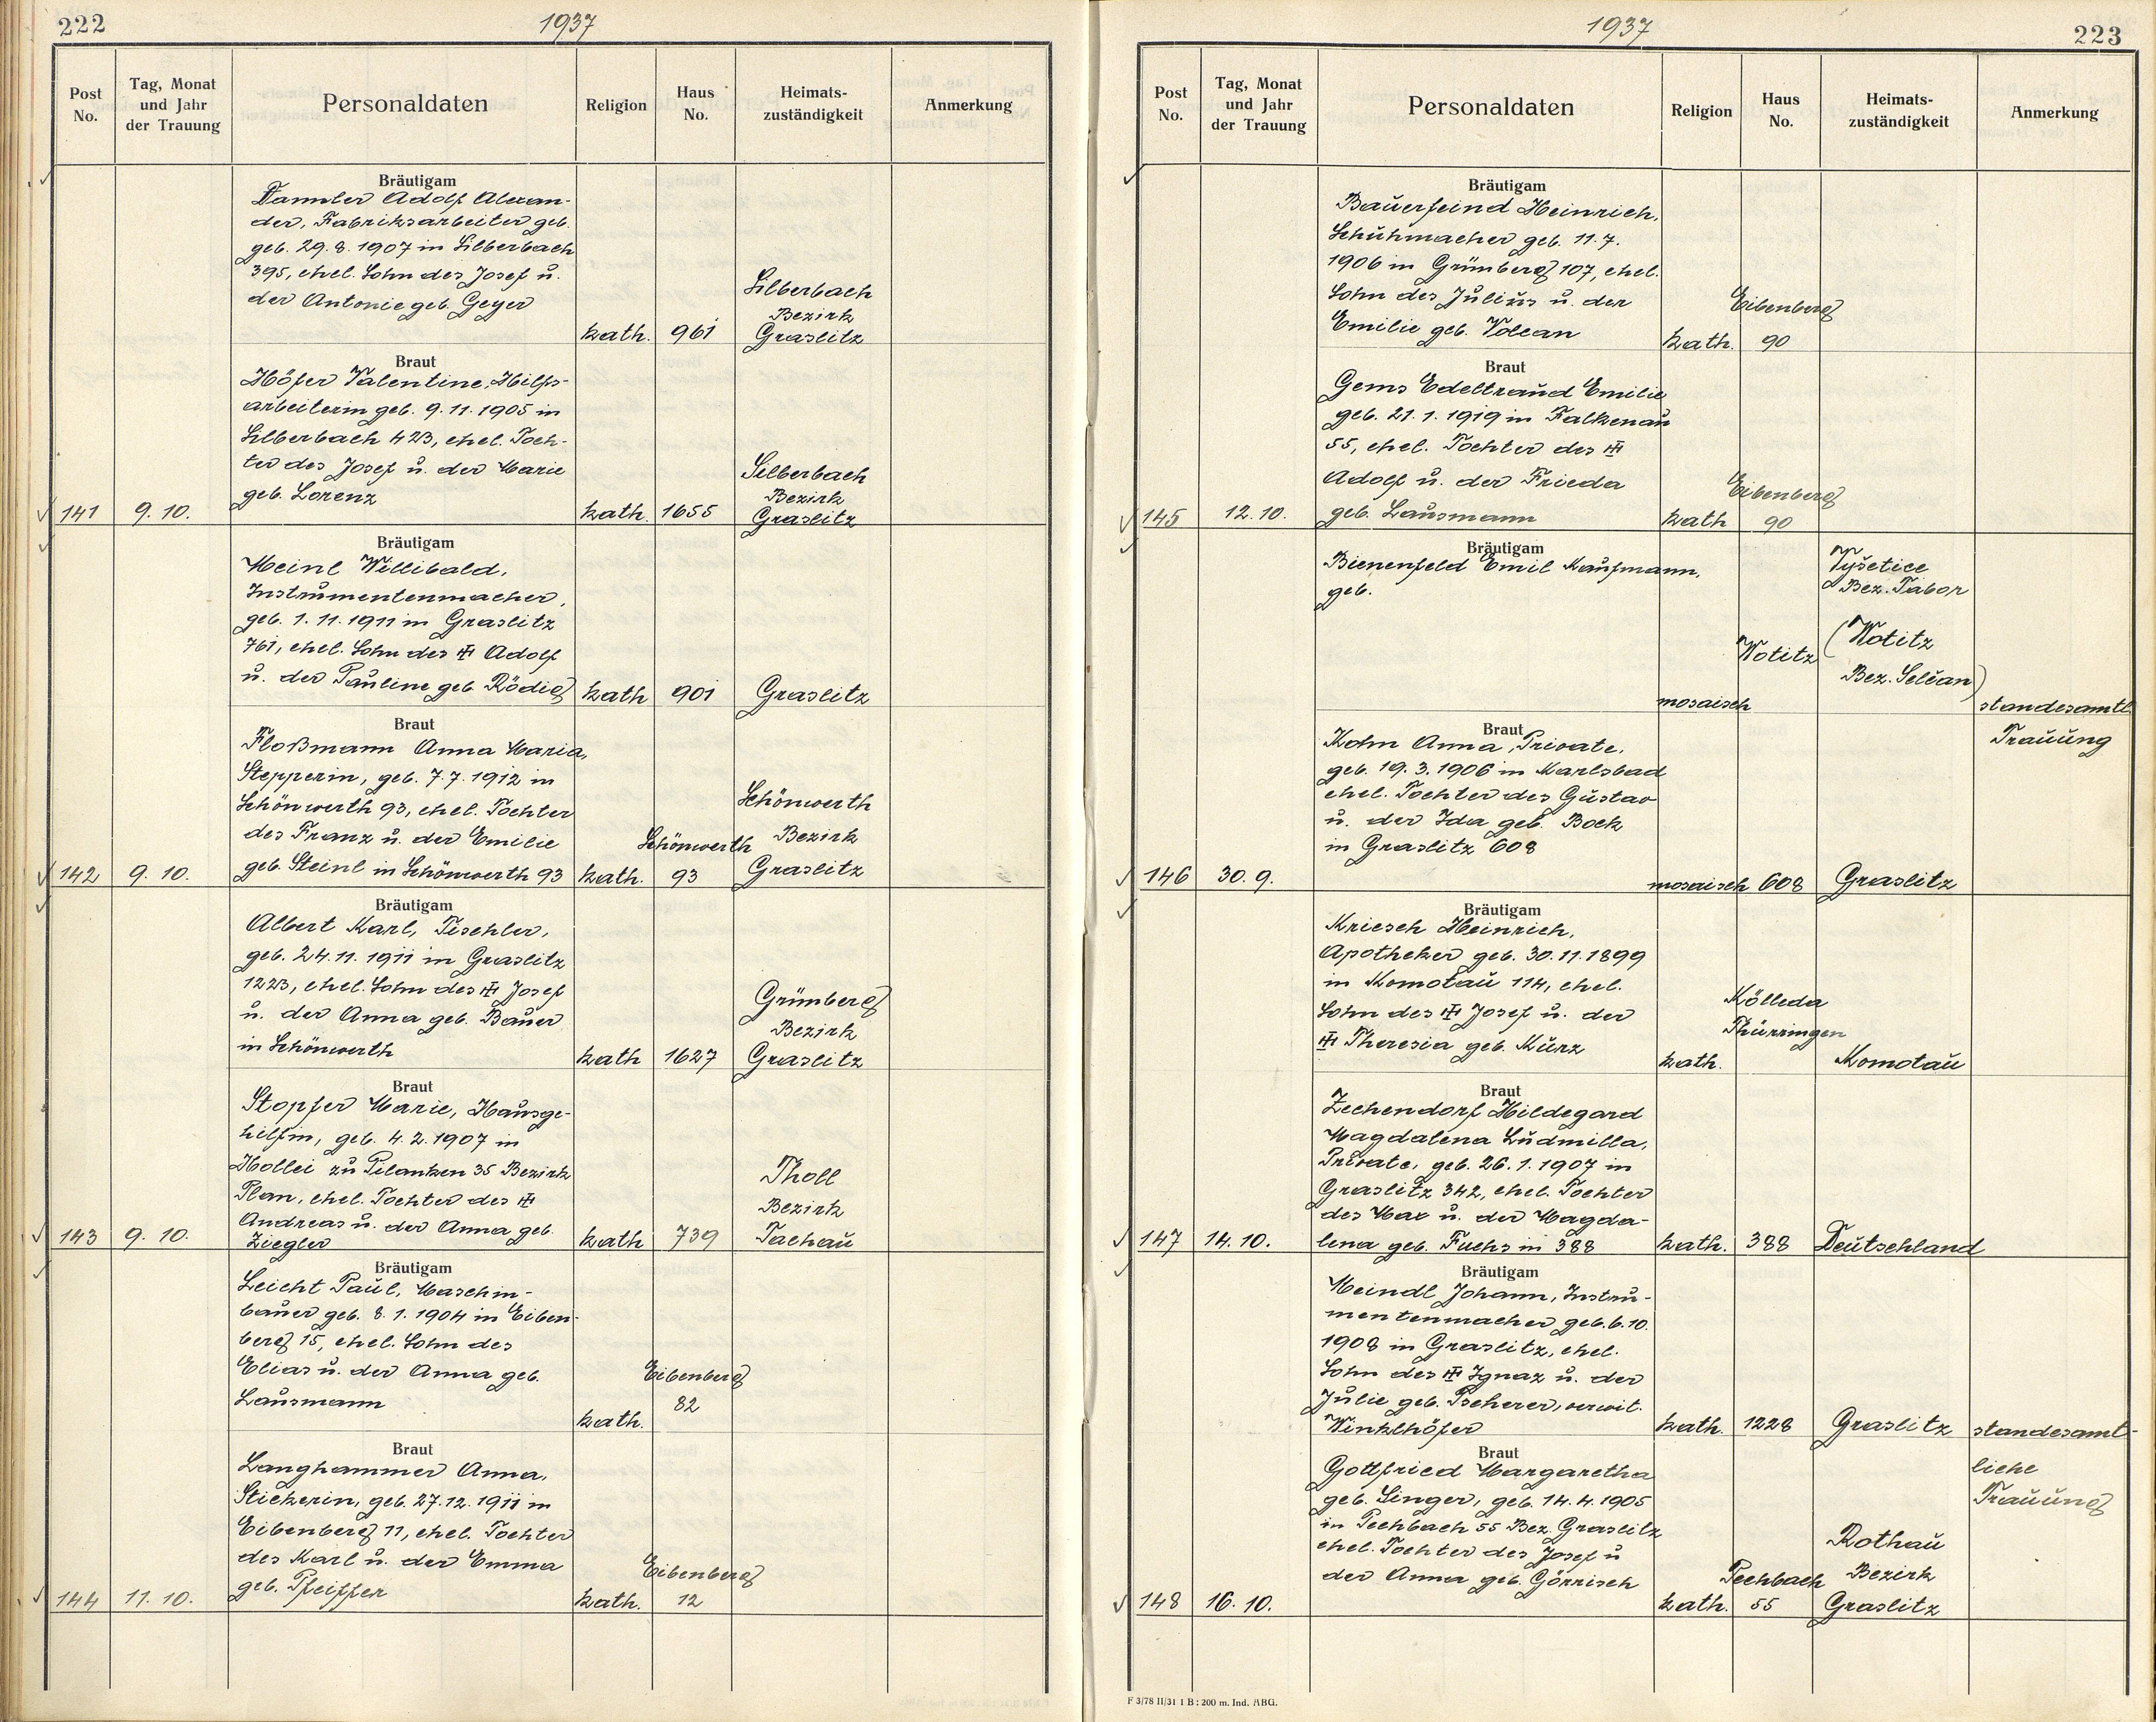 222
1937
Post No.
Tag, Monat und Jahr der Trauung
Personaldaten
Religion
Haus No.
Heimats-zuständigkeit
Anmerkung
Bräutigam
Dannler Adolf Alexan-
der, Fabriksarbeiter geb.
geb. 29.8.1907 in Silberbach
395, ehel. Sohn des Josef u.
der Antonie geb. Geyer
kath. 961
Silberbach
Bezirk
Graslitz
Braut
Höfer Valentine, Hilfs-
arbeiterin geb. 9.11.1905 in
Silberbach 423, ehel. Toch-
ter des Josef u. der Marie
geb. Lorenz
141 9.10.
kath. 1655
Silberbach
Bezirk
Graslitz
Bräutigam
Meinl Willibald,
Instrumentenmacher,
geb. 1.11.1911 in Graslitz
761, ehel. Sohn des Adolf
u. der Pauline geb Rödig
kath 901 Graslitz
Braut
Floßmann Anna Maria,
Stepperin, geb. 7.7.1912 in
Schönwerth 93, ehel. Tochter
des Franz u. der Emilie
geb. Steinl in Schönwerth 93
142 9.10.
kath.
Schönwerth
93
Schönwerth
Bezirk
Graslitz
Bräutigam
Albert Karl, Tischler,
geb. 24.11.1911 in Graslitz
1223, ehel. Sohn des Josef
u. der Anna geb. Bauer
in Schönwerth
kath 1627
Grünberg
Bezirk
Graslitz
Braut
Stopfer Marie, Hausge-
hilfin, geb. 4.2.1907 in
Hollei zu Pilanken 35 Bezirk
Plan, ehel. Tochter des
Andreas u. der Anna geb.
Ziegler
143 9.10.
kath 739
Tholl
Bezirk
Tachau
Bräutigam
Leicht Paul, Maschin-
bauer geb. 8.1.1904 in Eiben-
berg 15, ehel. Sohn des
Elias u. der Anna geb.
Lausmann
kath.
Eibenberg
82
Braut
Langhammer Anna,
Stickerin, geb. 27.12.1911 in
Eibenberg 11, ehel. Tochter
des Karl u. der Emma
geb. Pfeiffer
144 11.10.
kath.
Eibenberg
12
1937
223
Post No.
Tag, Monat und Jahr der Trauung
Personaldaten
Religion
Haus No.
Heimats-zuständigkeit
Anmerkung
Bräutigam
Bauerfeind Heinrich,
Schuhmacher geb. 11.7.
1906 in Grünberg 107, ehel.
Sohn des Julius u. der
Emilie geb. Volcan
kath.
Eibenberg
90
Braut
Gems Edeltraud Emilie
geb. 21.1.1919 in Falkenau
55, ehel. Tochter des
Adolf u. der Frieda
geb. Lausmann
145 12.10.
kath
Eibenberg
90
Bräutigam
Bienenfeld Emil Kaufmann,
geb.
mosaisch
Wotitz
Vyšetice
Bez. Tabor
(Wotitz
Bez. Selčan)
standesamtl.
Trauung
Braut
Kohn Anna, Private,
geb. 19.3.1906 in Karlsbad
ehel. Tochter des Gustav
u. der Ida geb. Bock
in Graslitz 608
146 30.9.
mosaisch 608 Graslitz
Bräutigam
Kriesch Heinrich,
Apotheker geb. 30.11.1899
in Komotau 114, ehel.
Sohn des Josef u. der
Theresia geb. Kurz
kath.
Kölleda
Thürringen
Komotau
Braut
Zechendorf Hildegard
Magdalena Ludmilla,
Private, geb. 26.1.1907 in
Graslitz 342, ehel. Tochter
des Max u. der Magda-
lena geb. Fuchs in 388
147 14.10.
kath. 388 Deutschland
Bräutigam
Meindl Johann, Instru-
mentenmacher geb. 6.10.
1908 in Graslitz, ehel.
Sohn des Ignaz u. der
Julie geb. Pscherer, verwit.
Winklhöfer
kath. 1228 Graslitz
standesamt-
liche
Trauung
Braut
Gottfried Margaretha
geb. Singer, geb. 14.4.1905
in Pechbach 55 Bez. Graslitz
ehel. Tochter des Josef u
der Anna geb. Görrisch
148 16.10.
kath.
Pechbach
55
Rothau
Bezirk
Graslitz
F 3/78 II/31 1 B : 200 m. Ind. ABG.